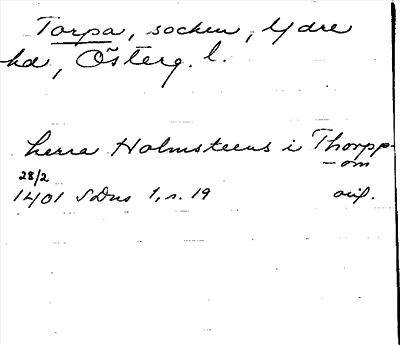 Torpa, socken, Ydre
hd, Österg. l.
herra Holmsteens i Thorpp-
om
28/2
1401 SDns 1, s. 19 orig.